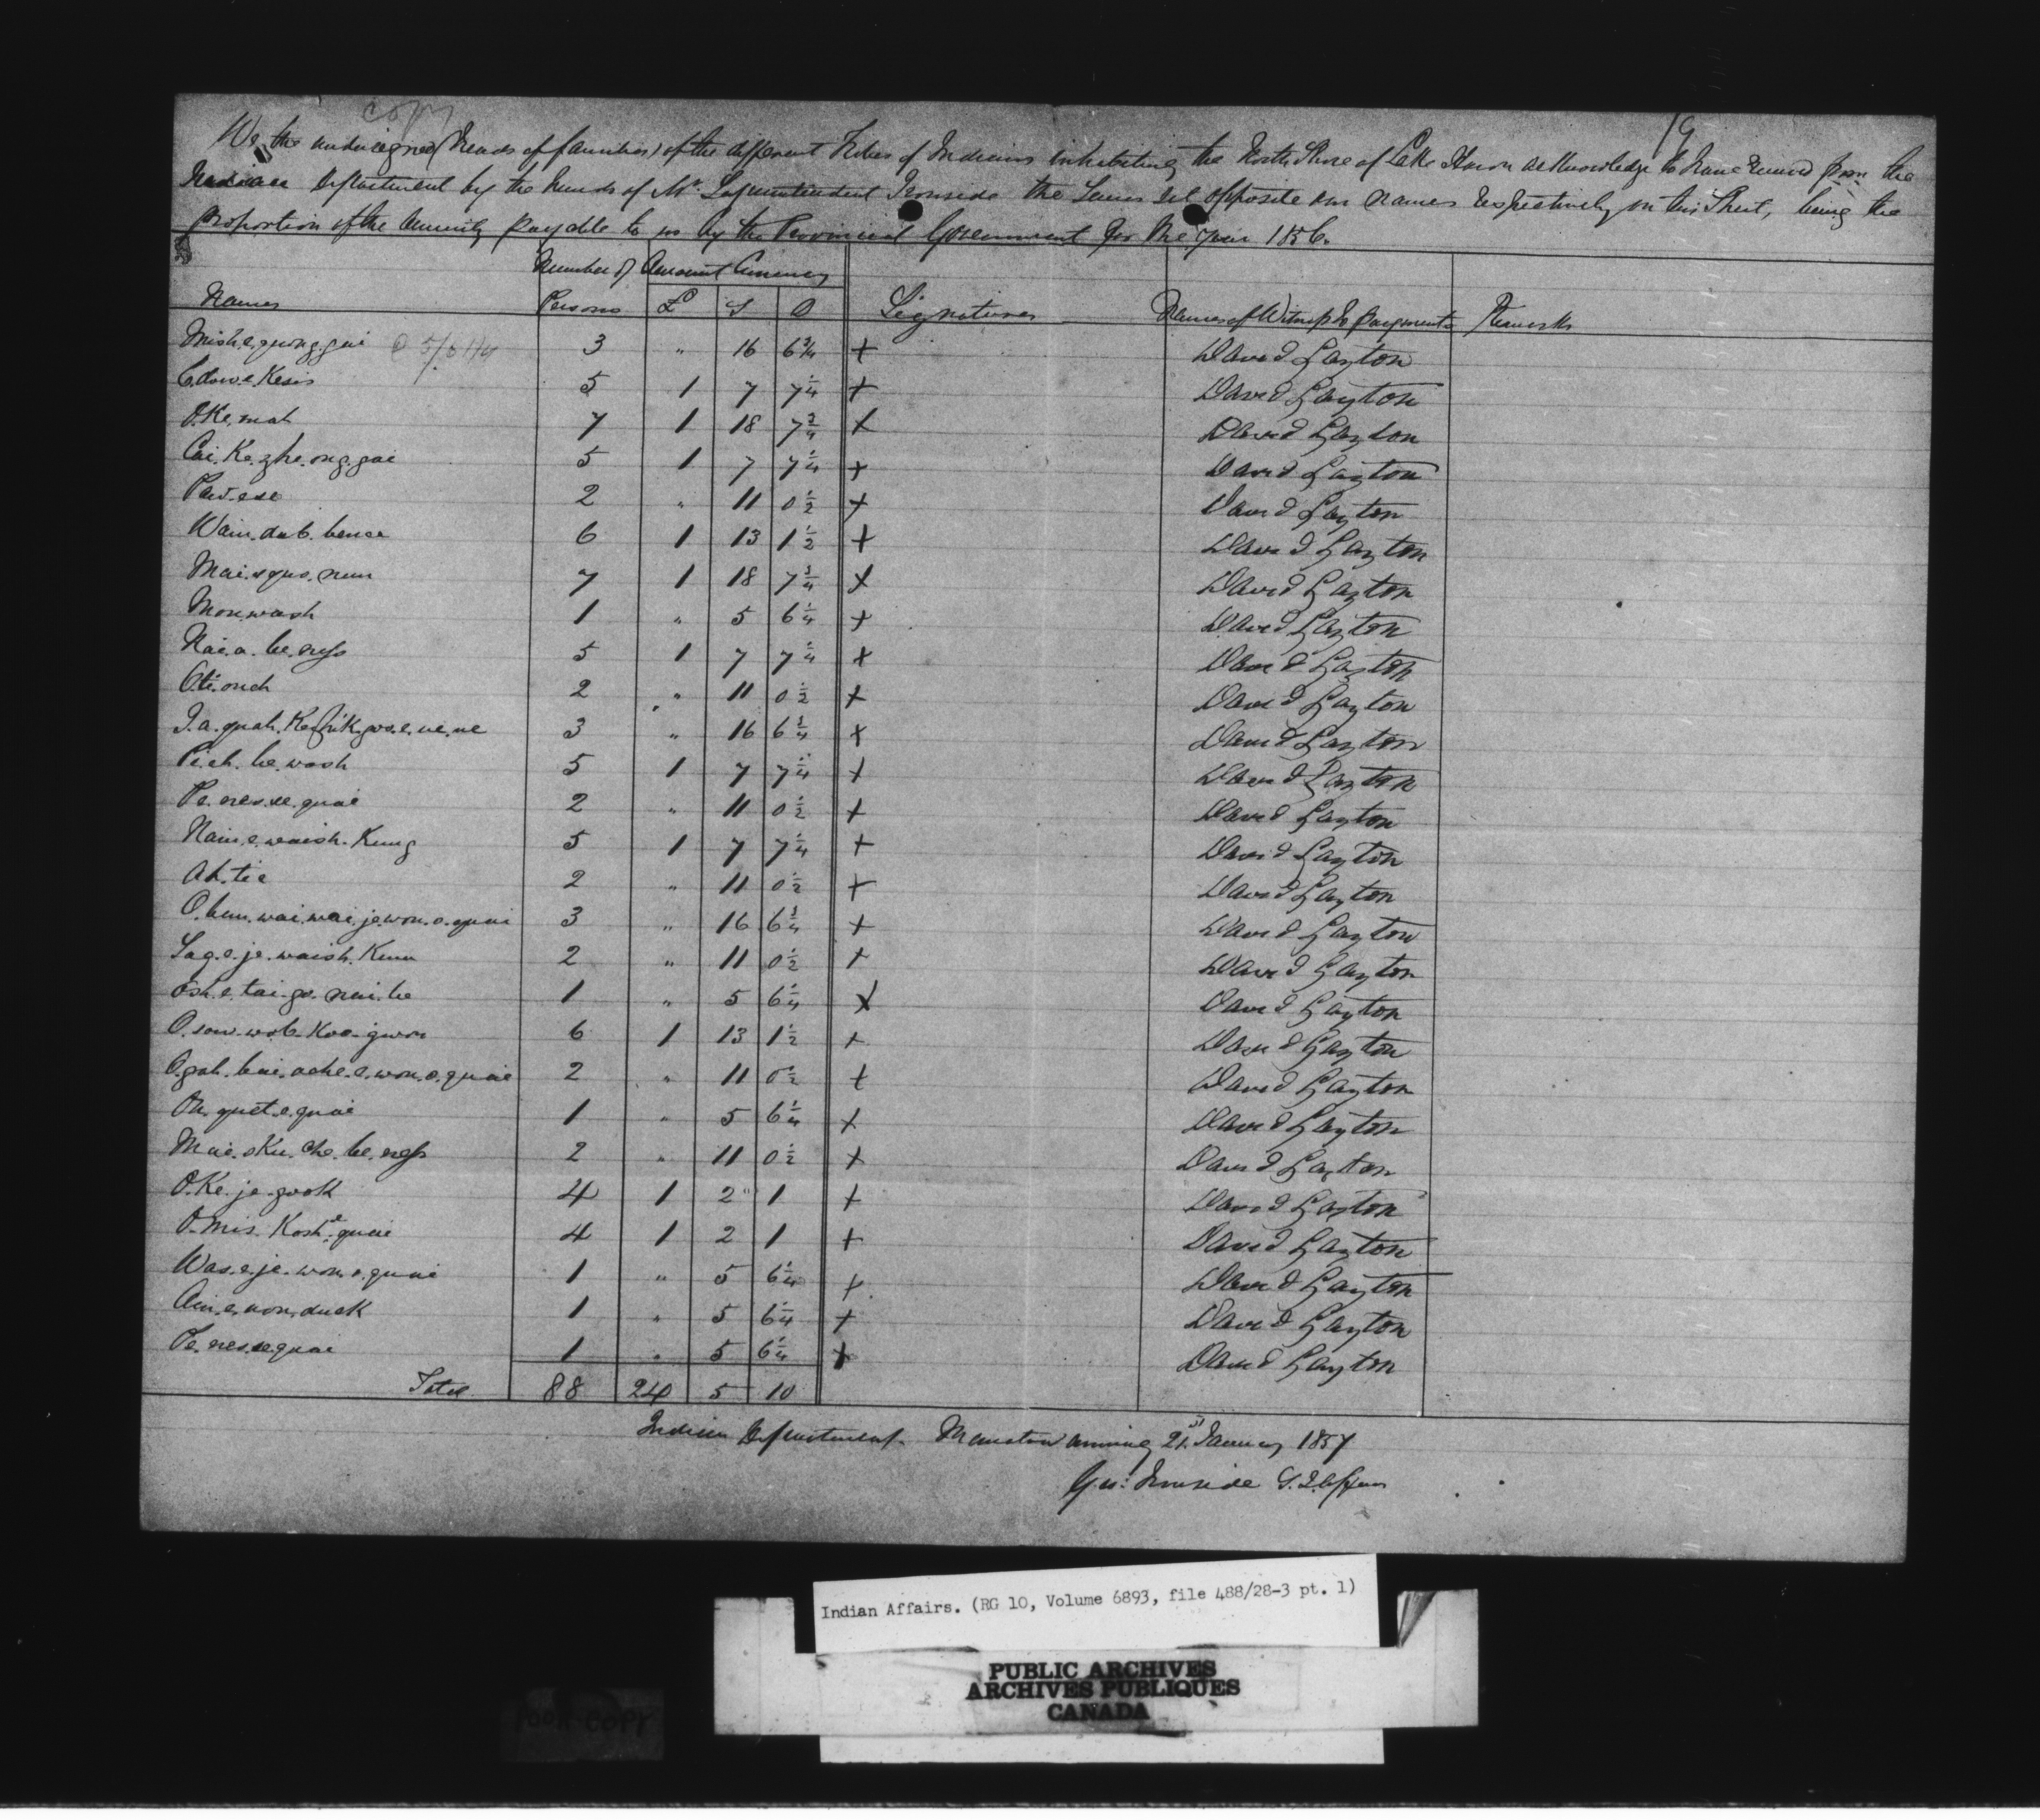 copy
19
We, the undersigned (Heads of families) of the different Tribes of Indians inhabiting the North Shore of Lake Huron acknowledge to have received from the
Indian Department by the hands of Mr. Superintendent Ironside the Sums set opposite our names respectively on this Sheet, being the
proportion of the Annuity payable to us by the Provincial Government for the year 1856.
Number of Amount Currency
Names Persons £ S D Signatures Names of Witness to payments Remarks
Mish.e.quong.gai @ 5/6 1/4 3 " 16 6 3/4 + David Layton
5 1 7 7 1/4 + David Layton
O.Ke.mah 7 1 18 7 3/4 X David Layton
Cai.Ke.zhe.ong.gai 5 1 7 7 1/4 + David Layton
Paw.ese 2 " 11 0 1/2 + David Layton
Wain.dub.bence 6 1 13 1 1/2 + David Layton
Mai.squo.nun 7 1 18 7 3/4 X David Layton
Mon.wash 1 " 5 6 1/4 + David Layton
Nai.a.be.ness 5 1 7 7 1/4 x David Layton
2 " 11 0 1/2 + David Layton
3 " 16 6 3/4 x David Layton
Pi.ch.be.wash 5 1 7 7 1/4 + David Layton
Pe.nes.se.quai 2 " 11 0 1/2 + David Layton
Nain.e.waish.Kung 5 1 7 7 1/4 + David Layton
Ah.tie 2 " 11 0 1/2 + David Layton
O.bun.wai.wai.je.won.o.quai 3 " 16 6 3/4 + David Layton
Sag.e.je.waish.Kum 2 " 11 0 1/2 + David Layton
Osh.e.tai.go.nai.be 1 " 5 6 1/4 X David Layton
O.saw.wob.Koo.gwon 6 1 13 1 1/2 + David Layton
O.gah.bai.ache.e.won.o.quai 2 " 11 0 1/2 + David Layton
On.quet.e.quai 1 " 5 6 1/4 + David Layton
Mai.sku.che.be.ness 2 " 11 0 1/2 + David Layton
O.Ke.je.gook 4 1 2 " 1 + David Layton
O.mis.Kosh.e.quai 4 1 2 1 + David Layton
Was.e.je.won.o.quai 1 " 5 6 1/4 + David Layton
Ain.e.won.duck 1 " 5 6 1/4 + David Layton
Pe.nes.se.quai 1 " 5 6 1/4 + David Layton
Total 88 24 5 10
Indian Department Manitowaning 21st January 1857
Geo: Ironside S.I.Affairs
Indian Affairs. (RG 10, Volume 6893, file 488/28-3 pt. 1)
PUBLIC ARCHIVES
ARCHIVES PUBLIQUES
CANADA
COPY